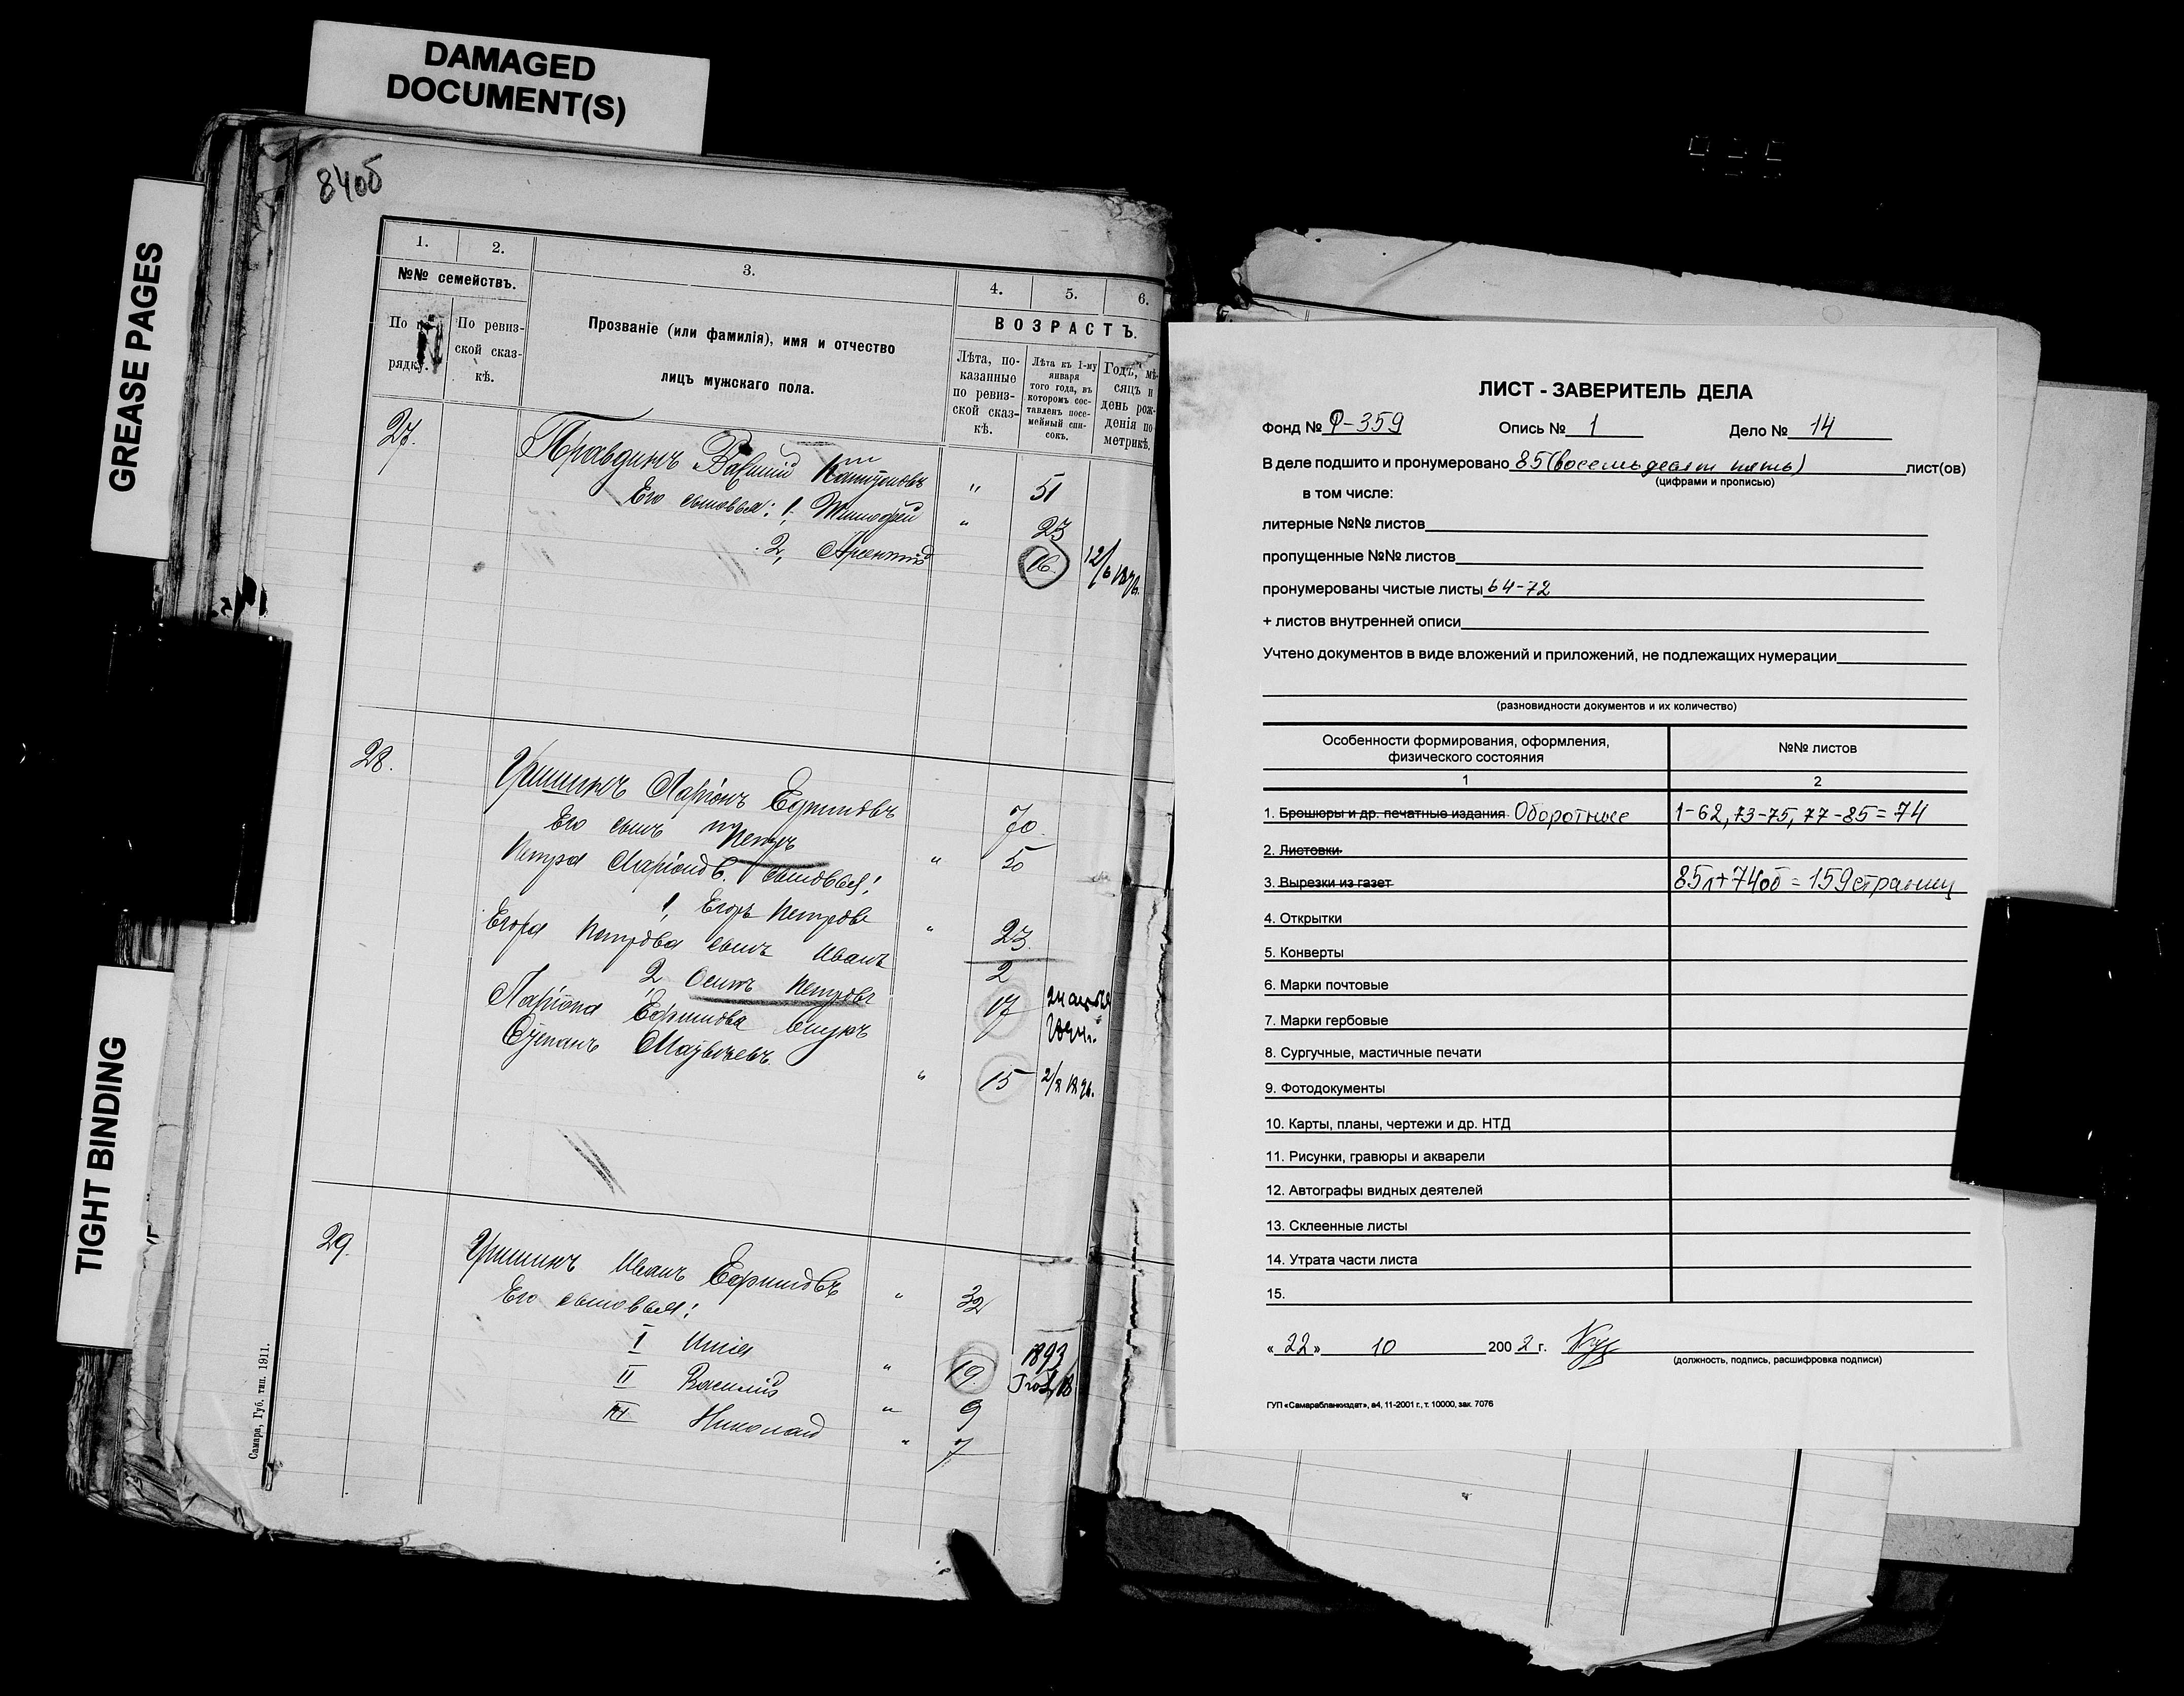 DAMAGED
DOCUMENT(S)
GREASE PAGES
TIGHT BINDING
84об
1. 2. 3. 4. 5. 6.
№№ семействъ.
По рядку.
По ревиз-
ской сказ-
кѣ.
Прозваніе (или фамилія), имя и отчество
лицъ мужскаго пола.
ВОЗРАСТЪ.
Лѣта, по-
казанные
по ревиз-
ской сказ-
кѣ.
Лѣта къ 1-му
января
того года, въ
которомъ сос-
тавленъ посе-
мейный спи-
сокъ.
Годъ, мѣ-
сяцъ и
день рож-
денія по
метрикѣ.
27. Правдинъ " 51
Его сыновья: 1, Тимофей " 23
2, Арсентій 16
28. Гришинъ Ларіонъ Ефимовъ 70.
Его сынъ Петръ " 50
Петра Ларіонов. сыновья:
1, Егоръ Петровъ " 23.
Егора Петрова сынъ Иванъ 2
2 Осипъ Петровъ 17
Ларіона Ефимова внукъ
Степанъ " 15
29. Гришинъ Иванъ Ефимовъ " 32
Его сыновья:
I Илія " 19. 1893
II Василій " 9
III Николай " 7
Самара, Губ. тип. 1911.
ЛИСТ - ЗАВЕРИТЕЛЬ ДЕЛА
Фонд № Ф-359 Опись № 1 Дело № 14
В деле подшито и пронумеровано 85 (восемьдесят пять) лист(ов)
(цифрами и прописью)
в том числе:
литерные №№ листов
пропущенные №№ листов
пронумерованы чистые листы 64-72
+ листов внутренней описи
Учтено документов в виде вложений и приложений, не подлежащих нумерации
(разновидности документов и их количество)
Особенности формирования, оформления,
физического состояния
№№ листов
1 2
1. Брошюры и др. печатные издания Оборотные 1-62, 73-75, 77-85 = 74
2. Листовки
3. Вырезки из газет 85л + 74об = 159 страниц
4. Открытки
5. Конверты
6. Марки почтовые
7. Марки гербовые
8. Сургучные, мастичные печати
9. Фотодокументы
10. Карты, планы, чертежи и др. НТД
11. Рисунки, гравюры и акварели
12. Автографы видных деятелей
13. Склеенные листы
14. Утрата части листа
15.
« 22 » 10 200 2 г.
(должность, подпись, расшифровка подписи)
ГУП «Самарабланкиздат», а4, 11-2001 г., т. 10000, зак. 7076